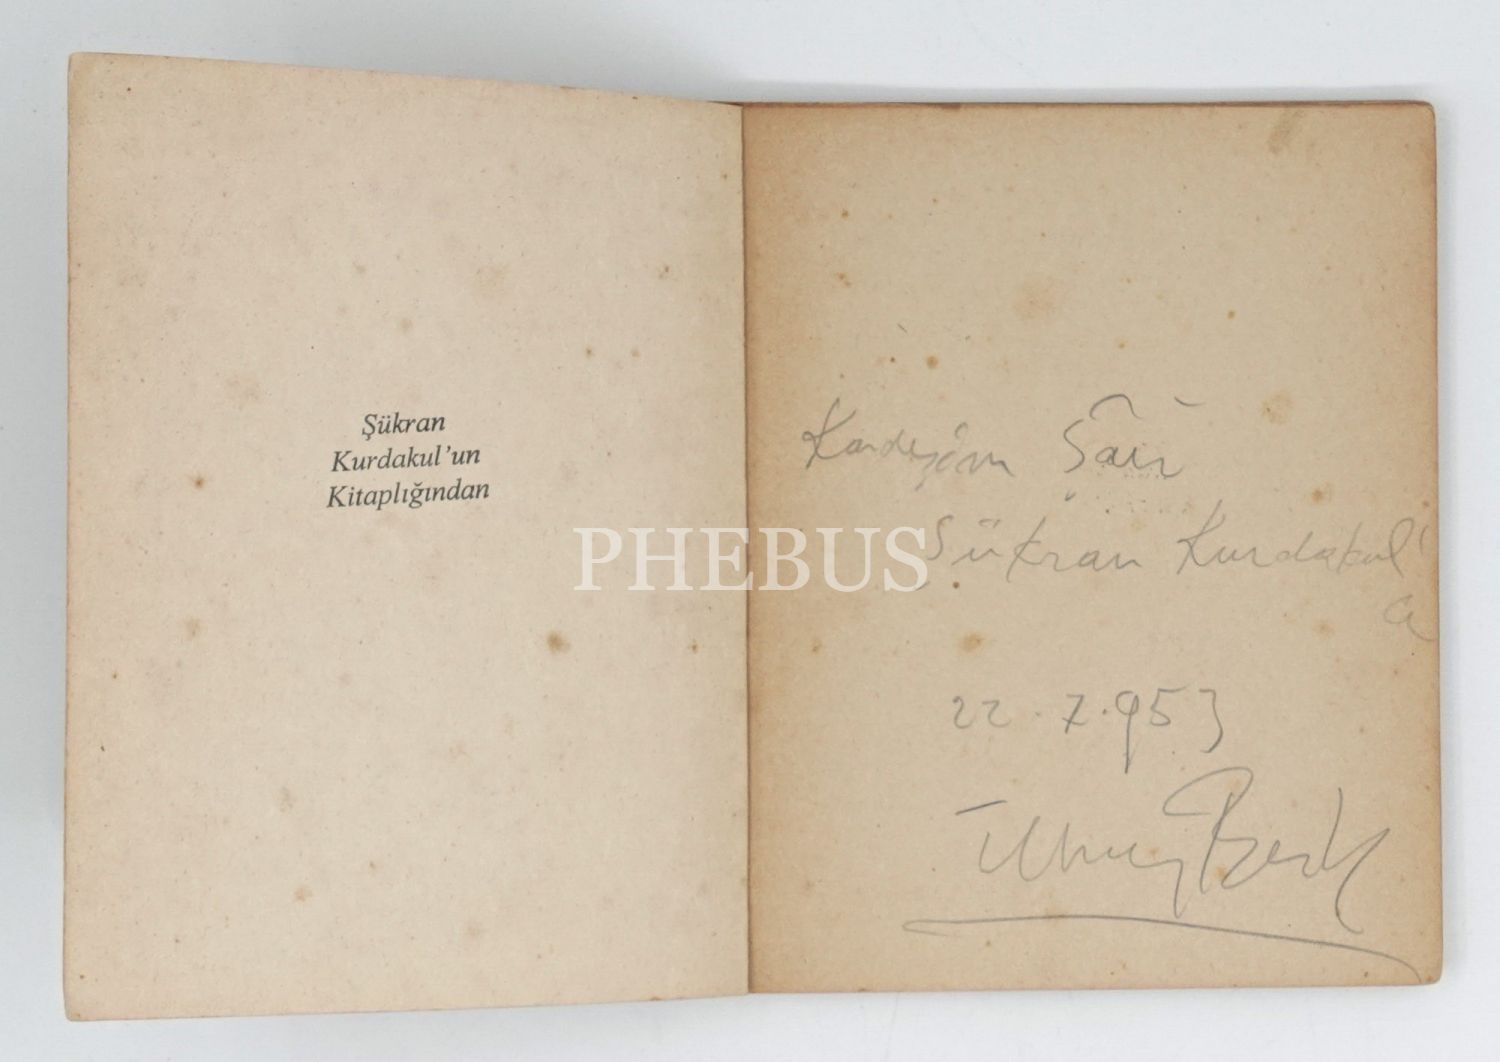 Şükran
Kurdakul'un
Kitaplığından
PHEBUS
Kardeşim Şair
Şükran Kurdakul'
a
22.7.953
İlhan Berk